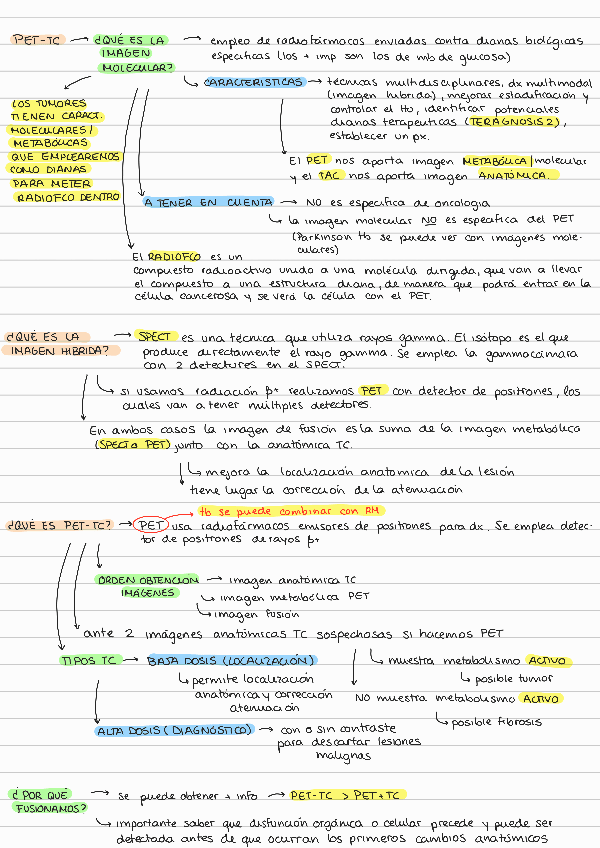 PET-TC → ¿QUÉ ES LA IMAGEN MOLECULAR? → empleo de radiofármacos enviadas contra dianas biológicas
específicas (los + imp son los de mb de glucosa)
LOS TUMORES
TIENEN CARACT.
MOLECULARES/
METABÓLICAS
QUE EMPLEAREMOS
COMO DIANAS
PARA METER
RADIOFCO DENTRO
CARACTERISTICAS → técnicas multidisciplinares, dx multimodal
(imagen híbrida), mejorar estadificación y
controlar el tto, identificar potenciales
dianas terapeuticas (TERAGNOSIS 2),
establecer un px.
El PET nos aporta imagen METABÓLICA/molecular
y el TAC nos aporta imagen ANATÓMICA.
A TENER EN CUENTA → NO es específica de oncología
↳ la imagen molecular NO es específica del PET
(Parkinson tb se puede ver con imágenes mole-
culares)
El RADIOFCO es un
compuesto radioactivo unido a una molécula dirigida, que van a llevar
el compuesto a una estructura diana, de manera que podrá entrar en la
célula cancerosa y se verá la célula con el PET.
¿QUÉ ES LA
IMAGEN HIBRIDA?
→ SPECT es una técnica que utiliza rayos gamma. El isótopo es el que
produce directamente el rayo gamma. Se emplea la gammacámara
con 2 detectores en el SPECT.
↳ si usamos radiación β+ realizamos PET con detector de positrones, los
cuales van a tener múltiples detectores.
En ambos casos la imagen de fusión es la suma de la imagen metabólica
(SPECT o PET) junto con la anatómica TC.
↳ mejora la localización anatomica de la lesión
tiene lugar la corrección de la atenuación
tb se puede combinar con RM
¿QUÉ ES PET-TC? → PET usa radiofármacos emisores de positrones para dx. Se emplea detec-
tor de positrones de rayos β+
ORDEN OBTENCION
IMÁGENES
→ imagen anatómica TC
↳ imagen metabólica PET
↳ imagen fusión
ante 2 imágenes anatómicas TC sospechosas si hacemos PET
↳ muestra metabolismo ACTIVO
↳ posible tumor
NO muestra metabolismo ACTIVO
↳ posible fibrosis
TIPOS TC → BAJA DOSIS (LOCALIZACIÓN)
↳ permite localización
anatómica y corrección
atenuación
ALTA DOSIS (DIAGNÓSTICO) → con o sin contraste
para descartar lesiones
malignas
¿POR QUÉ
FUSIONAMOS?
→ se puede obtener + info → PET-TC > PET + TC
↳ importante saber que disfunción orgánica o celular precede y puede ser
detectada antes de que ocurran los primeros cambios anatómicos